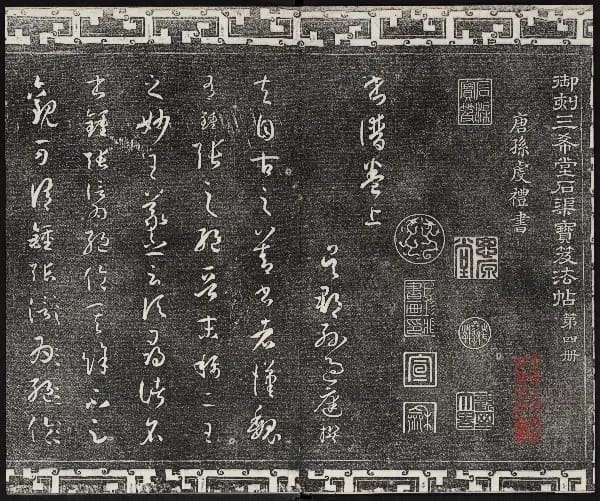 御刻三希堂石渠寶笈法帖 第四冊
唐孫虔禮書
石渠寶笈
書譜卷上
吳郡孫過庭撰
夫自古之善書者漢魏
有鍾張之絕晉末稱二王
之妙王羲之云頃尋諸名
書鍾張信為絕倫其餘不足
觀可謂鍾張